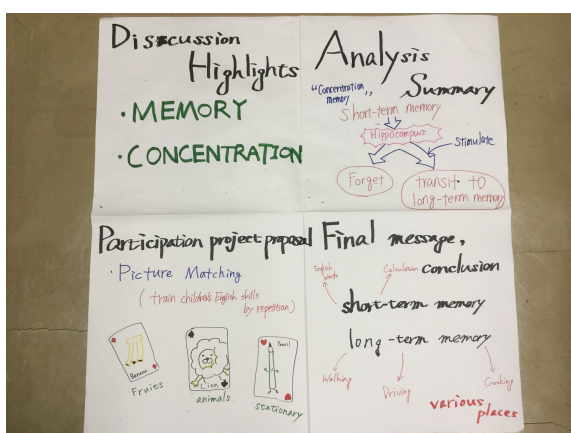 Discussion
Highlights
· MEMORY
· CONCENTRATION
Analysis
Summary
"Concentration
memory"
Short-term memory
Hippocampus
Stimulate
Forget
transit to
long-term memory
Participation project proposal
· Picture Matching
( train children's English skills
by repetition )
Banana
Fruits
Lion
animals
Pencil
stationary
Final message,
conclusion
English
words
Calculation
short-term memory
long-term memory
Walking
Driving
Cooking
various
places